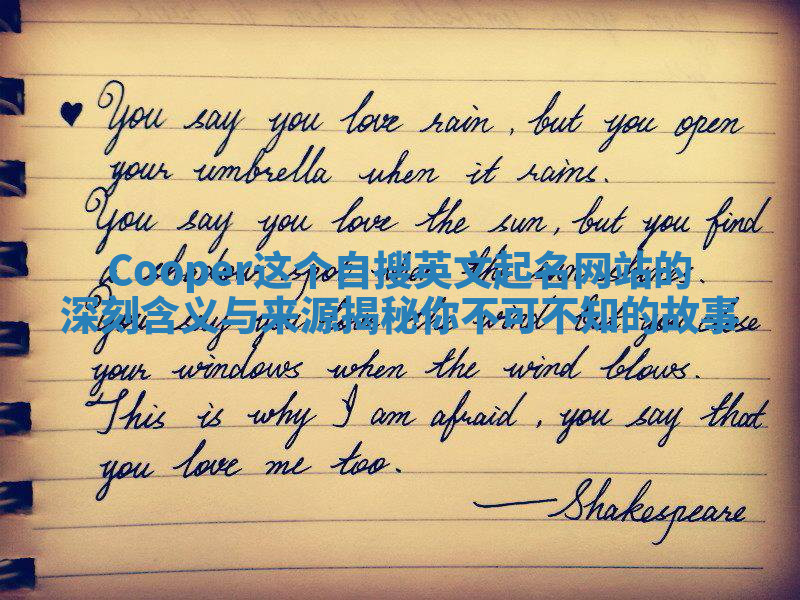 ♥ You say you love rain, but you open
your umbrella when it rains.
You say you love the sun, but you find
a shadow spot when the sun shines.
Cooper这个自搜英文起名网站的
深刻含义与来源揭秘你不可不知的故事
You say you love the wind but you close
your windows when the wind blows.
This is why I am afraid, you say that
you love me too.
—Shakespeare